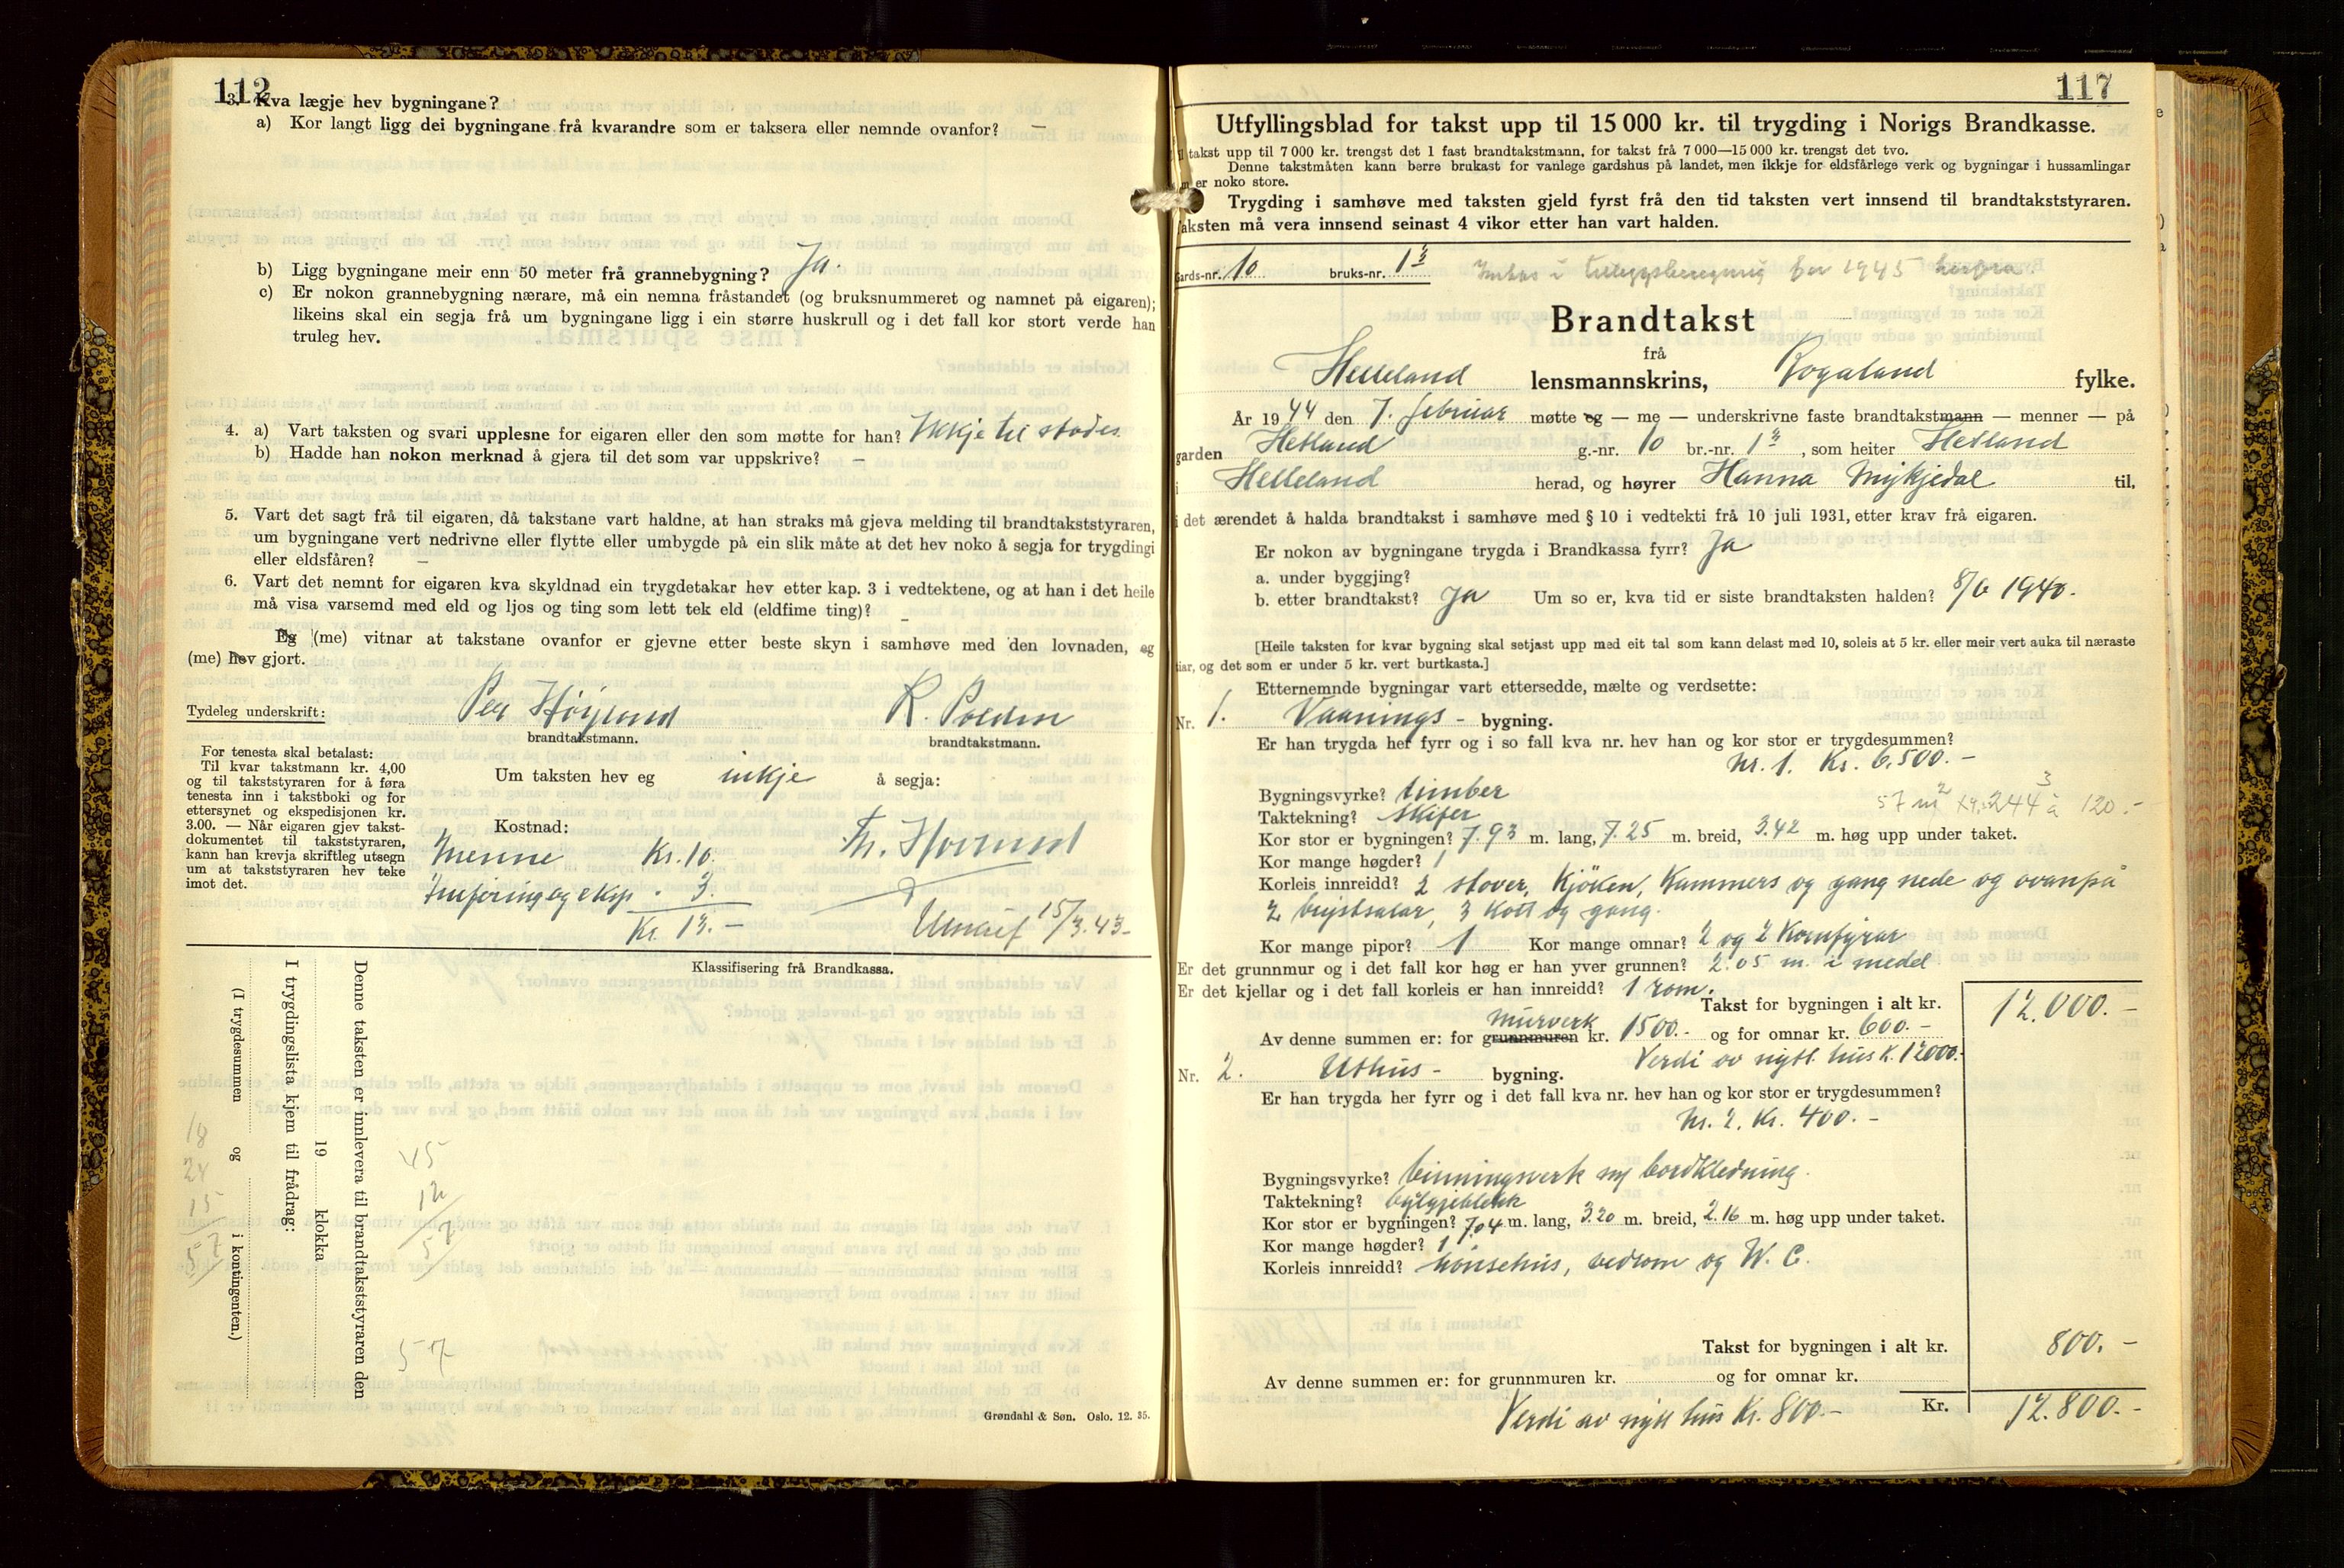 112
3. Kva lægje hev bygningane?
a) Kor langt ligg dei bygningane frå kvarandre som er taksera eller nemnde ovanfor? —
b) Ligg bygningane meir enn 50 meter frå grannebygning? Ja.
c) Er nokon grannebygning nærare, må ein nemna fråstandet (og bruksnummeret og namnet på eigaren);
likeins skal ein segja frå um bygningane ligg i ein større huskrull og i det fall kor stort verde han
truleg hev.
4. a) Vart taksten og svari upplesne for eigaren eller den som møtte for han? Ikkje til stades.
b) Hadde han nokon merknad å gjera til det som var uppskrive? —
5. Vart det sagt frå til eigaren, då takstane vart haldne, at han straks må gjeva melding til brandtakststyraren,
um bygningane vert nedrivne eller flytte eller umbygde på ein slik måte at det hev noko å segja for trygdingi
eller eldsfåren? —
6. Vart det nemnt for eigaren kva skyldnad ein trygdetakar hev etter kap. 3 i vedtektene, og at han i det heile
må visa varsemd med eld og ljos og ting som lett tek eld (eldfime ting)? —
Eg (me) vitnar at takstane ovanfor er gjevne etter beste skyn i samhøve med den lovnaden, eg
(me) hev gjort.
Tydeleg underskrift: Per Høyland R.
brandtakstmann. brandtakstmann.
For tenesta skal betalast:
Til kvar takstmann kr. 4,00
og til takststyraren for å føra
tenesta inn i takstboki og for
ettersynet og ekspedisjonen kr.
3.00. — Når eigaren gjev takst-
dokumentet til takststyraren,
kann han krevja skriftleg utsegn
um at takststyraren hev teke
imot det.
Um taksten hev eg inkje å segja:
Kostnad:
Menne Kr. 10.
Innføring og eksp. " 3
Kr. 13. —
15/3.43.
Klassifisering frå Brandkassa.
Denne taksten er innlevera til brandtakststyraren den
19 klokka
I trygdingslista kjem til frådrag:
(I trygdesummen og i kontingenten.)
18
24
15
57
45
12
57
57
Grøndahl & Søn. Oslo. 12. 35.
117
Utfyllingsblad for takst upp til 15 000 kr. til trygding i Norigs Brandkasse.
takst upp til 7 000 kr. trengst det 1 fast brandtakstmann, for takst frå 7 000—15 000 kr. trengst det tvo.
Denne takstmåten kann berre brukast for vanlege gardshus på landet, men ikkje for eldsfårlege verk og bygningar i hussamlingar
er noko store.
Trygding i samhøve med taksten gjeld fyrst frå den tid taksten vert innsend til brandtakststyraren.
Taksten må vera innsend seinast 4 vikor etter han vart halden.
Gards-nr. 10 bruks-nr. 1 i tilleggsberegning for 1945 herfra.
Brandtakst
frå
Helleland lensmannskrins, Rogaland fylke.
År 1944 den 7. februar møtte eg — me — underskrivne faste brandtakstmann — menner — på
garden Hetland g.-nr. 10 br.-nr. 1 , som heiter Hetland
i Helleland herad, og høyrer Hanna Mykjedal til,
i det ærendet å halda brandtakst i samhøve med § 10 i vedtekti frå 10 juli 1931, etter krav frå eigaren.
Er nokon av bygningane trygda i Brandkassa fyrr? Ja
a. under byggjing?
b. etter brandtakst? Ja Um so er, kva tid er siste brandtaksten halden? 8/6 1940.
[Heile taksten for kvar bygning skal setjast upp med eit tal som kann delast med 10, soleis at 5 kr. eller meir vert auka til næraste
tiar, og det som er under 5 kr. vert burtkasta.]
Etternemnde bygningar vart ettersedde, mælte og verdsette:
Nr. 1. Vaanings- bygning.
Er han trygda her fyrr og i so fall kva nr. hev han og kor stor er trygdesummen?
Nr. 1. Kr. 6.500. —
Bygningsvyrke? timber 57 m² 244 à 120. —
Taktekning? skifer
Kor stor er bygningen? 7.93 m. lang, 7.25 m. breid, 3.42 m. høg upp under taket.
Kor mange høgder? 1
Korleis innreidd? 2 stover, Kjöken, Kammers og gang nede og ovanpå
2 kvistsalar, 3 kott og gang.
Kor mange pipor? 1 Kor mange omnar? 2 og 2 Komfyrar
Er det grunnmur og i det fall kor høg er han yver grunnen? 2.05 m. i medel
Er det kjellar og i det fall korleis er han innreidd? 1 rom.
Takst for bygningen i alt kr. 12.000. —
Av denne summen er: for grunnmuren murverk kr. 1500. — og for omnar kr. 600. —
Verdi av nytt hus K. 12000. —
Nr. 2. Uthus- bygning.
Er han trygda her fyrr og i det fall kva nr. hev han og kor stor er trygdesummen?
Nr. 2. Kr. 400. —
Bygningsvyrke? binningsverk m/ bordkledning.
Taktekning? bylgjeblekk
Kor stor er bygningen? 7.04 m. lang, 3.20 m. breid, 2.16 m. høg upp under taket.
Kor mange høgder? 1
Korleis innreidd? hönsehus, vedrom og W. C.
Takst for bygningen i alt kr. 800. —
Av denne summen er: for grunnmuren kr. og for omnar kr.
Kr. 12.800. —
Verdi av nytt hus Kr. 800. —